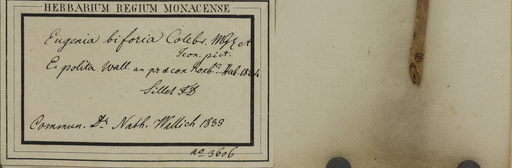 HERBARIUM REGIUM MONACENSE
Eugenia biforia Colebr. Mss et
Icon. pict.
E. polita Wall. an præcox Roxb.
Sillet
Commun. Dr. Nath. Wallich 1838
no 3606